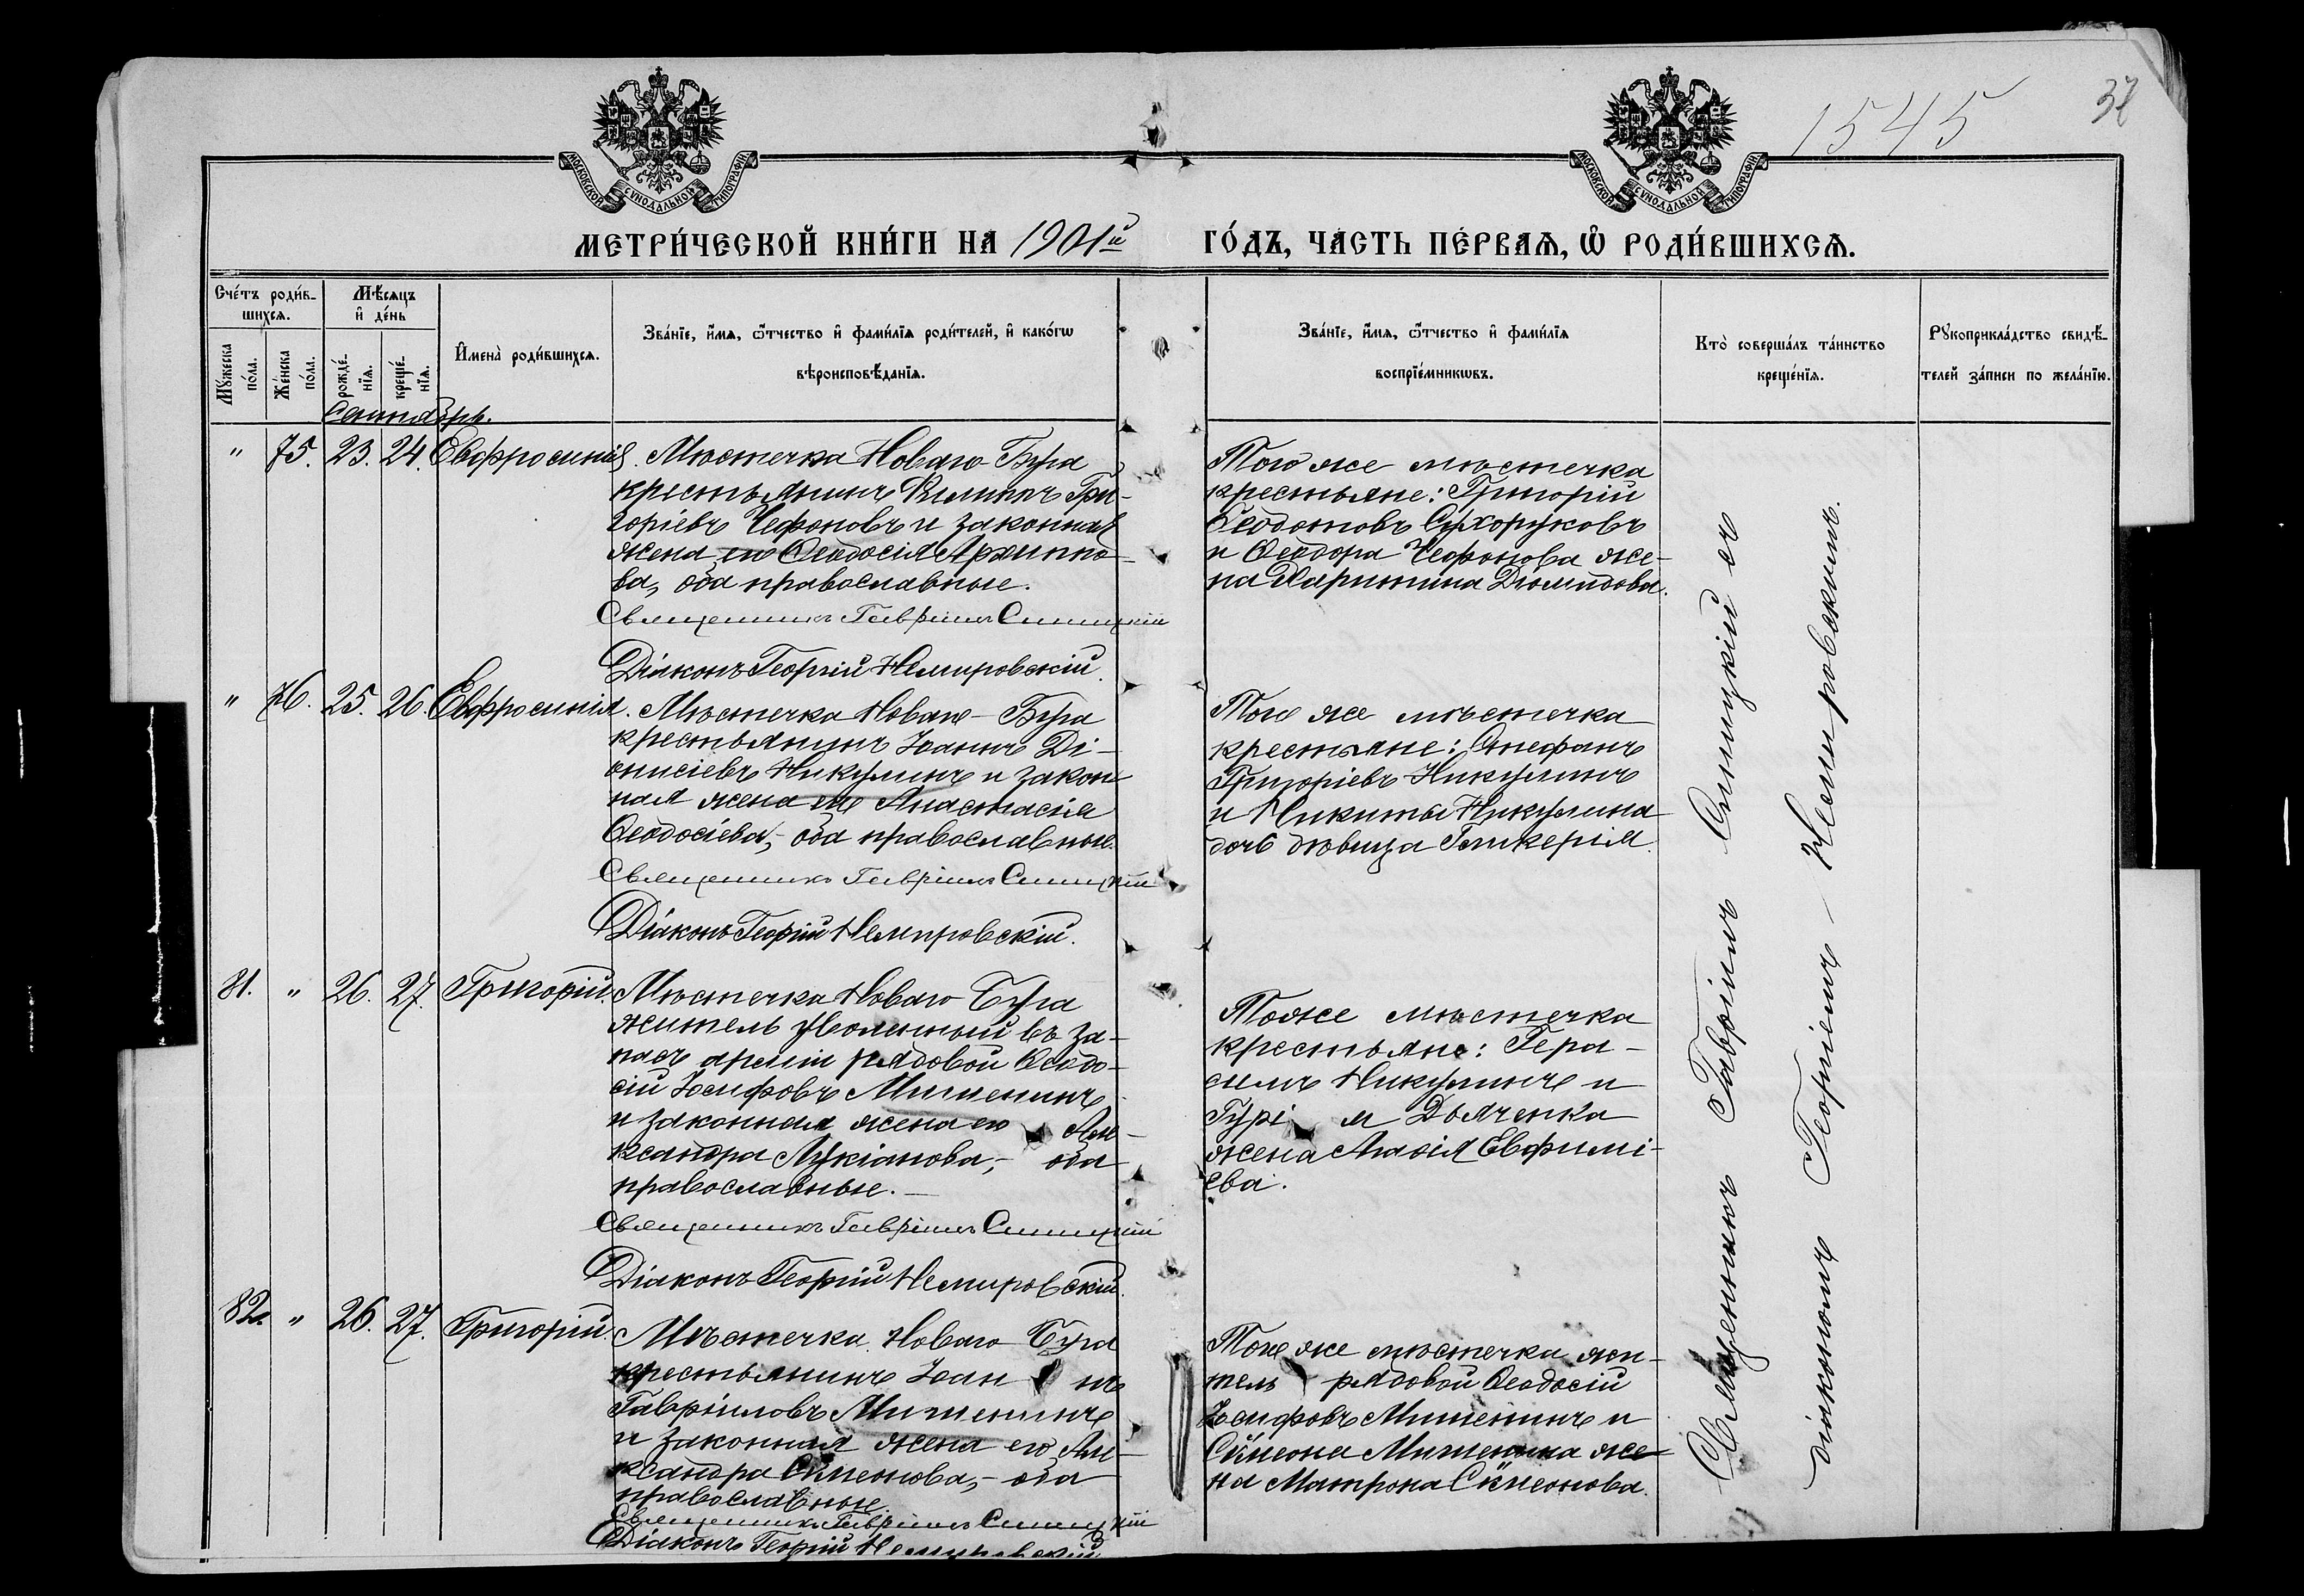 1545
37
МОСКОВСКОЙ СѴНОДАЛЬНОЙ ТИПОГРАФІИ.
МОСКОВСКОЙ СѴНОДАЛЬНОЙ ТИПОГРАФІИ.
МЕТРИ́ЧЕСКОЙ КНИ́ГИ НА 1901й ГО́ДЪ, ЧА́СТЬ ПЕ́РВАѦ, Ѡ҆ РОДИ́ВШИХСѦ.
Сче́тъ роди́в-
шихсѧ.
Мꙋ́жеска по́ла.
Же́нска по́ла.
Мѣ́сѧцъ
и҆ де́нь
рожде́-
нїѧ.
креще́-
нїѧ.
И҆мена̀ роди́вшихсѧ.
Зва́нїе, и҆́мѧ, ѻ҆́тчество и҆ фами́лїѧ роди́телей, и҆ како́гѡ
вѣроисповѣ́данїѧ.
Зва́нїе, и҆́мѧ, ѻ҆́тчество и҆ фами́лїѧ
воспрїе́мникѡвъ.
Кто̀ соверша́лъ та́инство
креще́нїѧ.
Рꙋкоприкла́дство свидѣ́-
телей за́писи по жела́нїю.
Сентябрь.
" 75. 23. 24. Евфросинія.
Мѣстечка Новаго-Буга
крестьянинъ Филиппъ Гри-
горіевъ Чефоновъ и законная
жена его Ѳеодосія Архиппо-
ва, оба православные.
Священникъ Гавріилъ Синицкій
Діаконъ Георгій Немировскій.
Того же мѣстечка
крестьяне: Григорій
Ѳеодотовъ Сухоруковъ
и Ѳеодора Чефонова же-
на Харитина Діомидова.
" 76. 25. 26. Евфросинія.
Мѣстечка Новаго-Буга
крестьянинъ Іоаннъ Ді-
онисіевъ Никулинъ и закон-
ная жена его Анастасія
Ѳеодосіева, оба православные.
Священникъ Гавріилъ Синицкій
Діаконъ Георгій Немировскій.
Того же мѣстечка
крестьяне: Стефанъ
Григоріевъ Никулинъ
и Никиты Никулина
дочь дѣвица Гликерія.
81. " 26. 27. Григорій.
Мѣстечка Новаго Буга
житель уволенный въ за-
пасъ арміи рядовой Ѳеодо-
сій Іосифовъ Мишенинъ
и законная жена его Але-
ксандра Лукіанова, оба
православные.
Священникъ Гавріилъ Синицкій
Діаконъ Георгій Немировскій.
Тоже мѣстечка
крестьяне: Гера-
симъ Никулинъ и
Гурія Дьяченка
жена Агаѳія Евфимі-
ева.
82. " 26. 27. Григорій.
Мѣстечка Новаго Буга
крестьянинъ Іоаннъ
Гавріиловъ Мишенинъ
и законная жена его Але-
ксандра Сѵмеонова, оба
православные.
Священникъ Гавріилъ Синицкій
Діаконъ Георгій Немировскій
Того же мѣстечка жи-
тель рядовой Ѳеодосій
Іосифовъ Мишенинъ и
Сѵмеона Мишенина же-
на Матрона Сѵмеонова.
Священникъ Гавріилъ Синицкій съ
діакономъ Георгіемъ Немировскимъ.